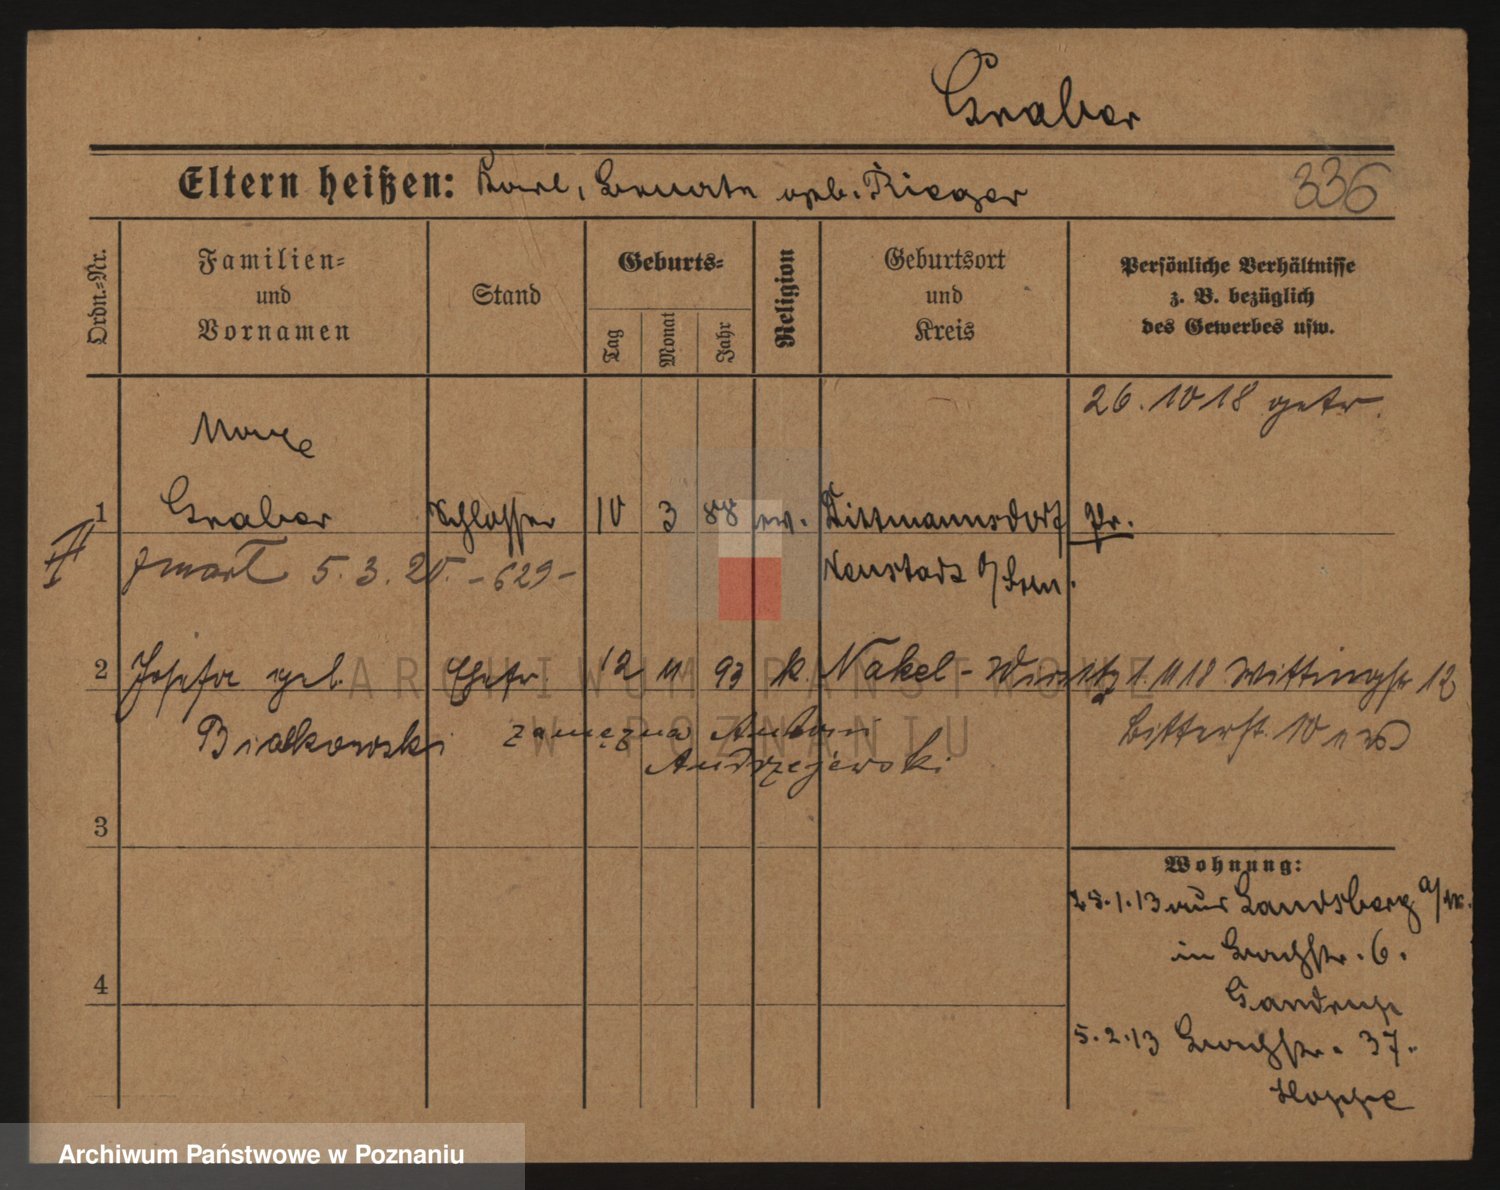 Graber
Eltern heißen: Karl, Beate geb. Rieger
336
Ordn.=Nr.
Familien=
und
Vornamen
Stand
Geburts=
Tag
Monat
Jahr
Religion
Geburtsort
und
Kreis
Persönliche Verhältnisse
z. B. bezüglich
des Gewerbes usw.
26. 10 18 getr.
Max
1 Graber Schlosser 10 3 88 ev. Dittmannsdorf Pr.
II zmarł 5. 3. 20. - 629 - Neustadt
2 Josefa geb. Ehefr. 12 11 93 k. Nakel - Wirsitz 1. 11 18 Wittingstr 12
Bialkowski zamężna Antoni
Bitterstr. 10
Andrzejewski
3
4
Wohnung:
28. 1. 13 aus Landsberg a/W.
in Bachstr. 6.
5. 2. 13 Bachstr. 37.
Hoppe
ARCHIWUM PAŃSTWOWE
W POZNANIU
Archiwum Państwowe w Poznaniu